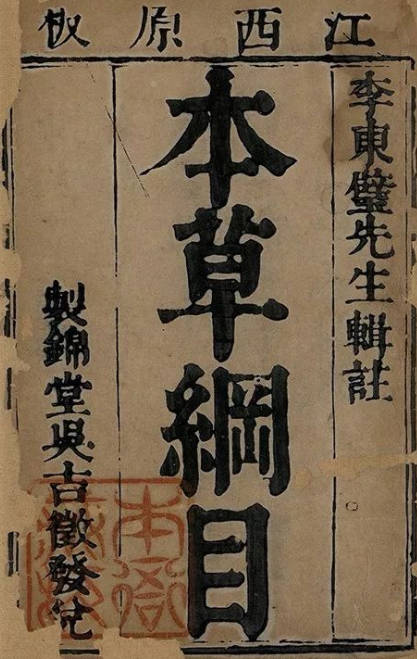 江西原板
李東璧先生輯註
本草綱目
製錦堂吳吉徵發兌